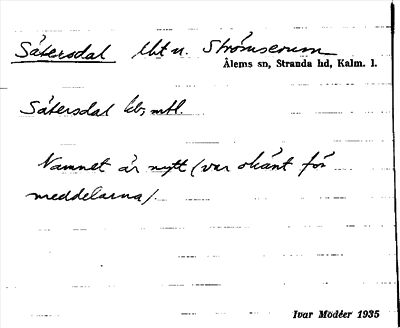 Sätersdal lht u. Strömserum
Ålems sn, Stranda hd, Kalm. l.
Sätersdal lb, mtl.
Namnet är nytt (var okänt för
meddelarna).
Ivar Modéer 1935